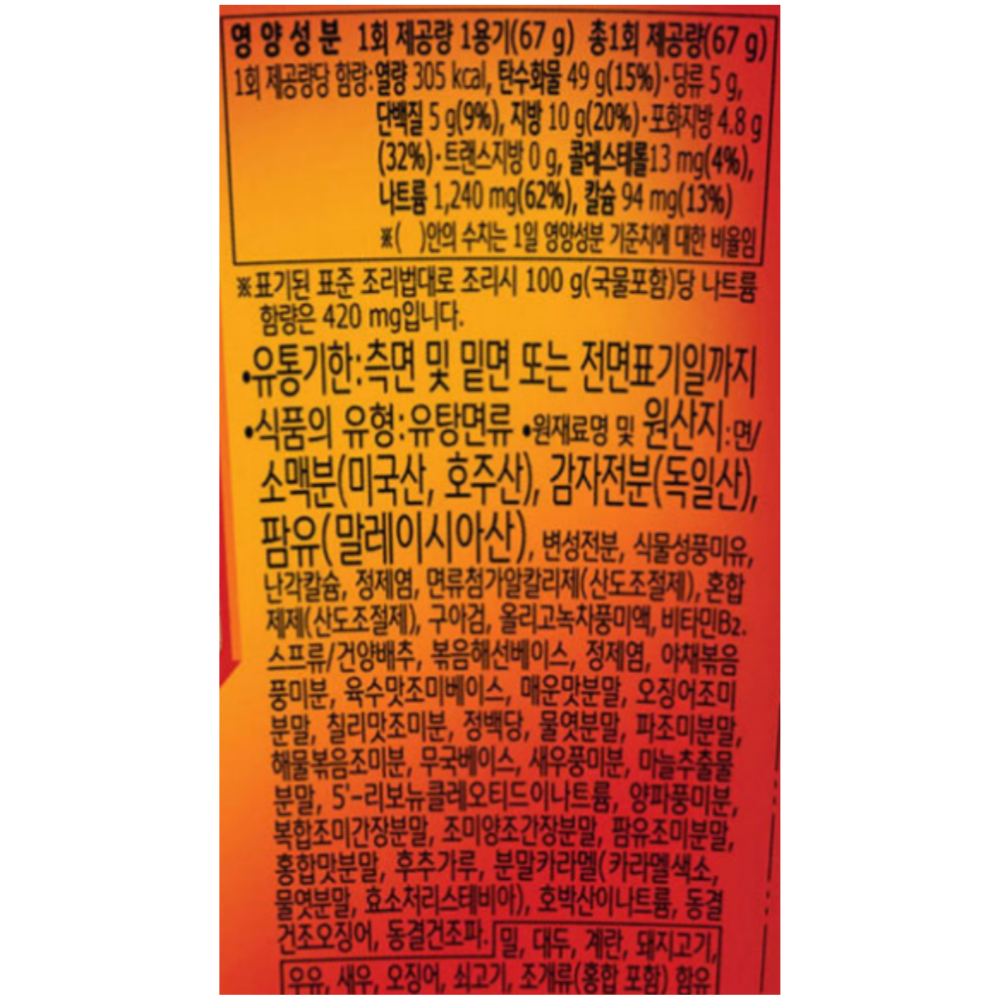 영양성분 1회 제공량 1용기(67 g) 총1회 제공량(67 g)
1회 제공량당 함량:열량 305 kcal, 탄수화물 49 g(15%)·당류 5 g,
단백질 5 g(9%), 지방 10 g(20%)·포화지방 4.8 g
(32%)·트랜스지방 0 g, 콜레스테롤13 mg(4%),
나트륨 1,240 mg(62%), 칼슘 94 mg(13%)
※( )안의 수치는 1일 영양성분 기준치에 대한 비율임
※표기된 표준 조리법대로 조리시 100 g(국물포함)당 나트륨
함량은 420 mg입니다.
•유통기한:측면 및 밑면 또는 전면표기일까지
•식품의 유형:유탕면류 •원재료명 및 원산지:면/
소맥분(미국산, 호주산), 감자전분(독일산),
팜유(말레이시아산), 변성전분, 식물성풍미유,
난각칼슘, 정제염, 면류첨가알칼리제(산도조절제), 혼합
제제(산도조절제), 구아검, 올리고녹차풍미액, 비타민B2.
스프류/건양배추, 볶음해선베이스, 정제염, 야채볶음
풍미분, 육수맛조미베이스, 매운맛분말, 오징어조미
분말, 칠리맛조미분, 정백당, 물엿분말, 파조미분말,
해물볶음조미분, 무국베이스, 새우풍미분, 마늘추출물
분말, 5'-리보뉴클레오티드이나트륨, 양파풍미분,
복합조미간장분말, 조미양조간장분말, 팜유조미분말,
홍합맛분말, 후추가루, 분말카라멜(카라멜색소,
물엿분말, 효소처리스테비아), 호박산이나트륨, 동결
건조오징어, 동결건조파. 밀, 대두, 계란, 돼지고기,
우유, 새우, 오징어, 쇠고기, 조개류(홍합 포함) 함유